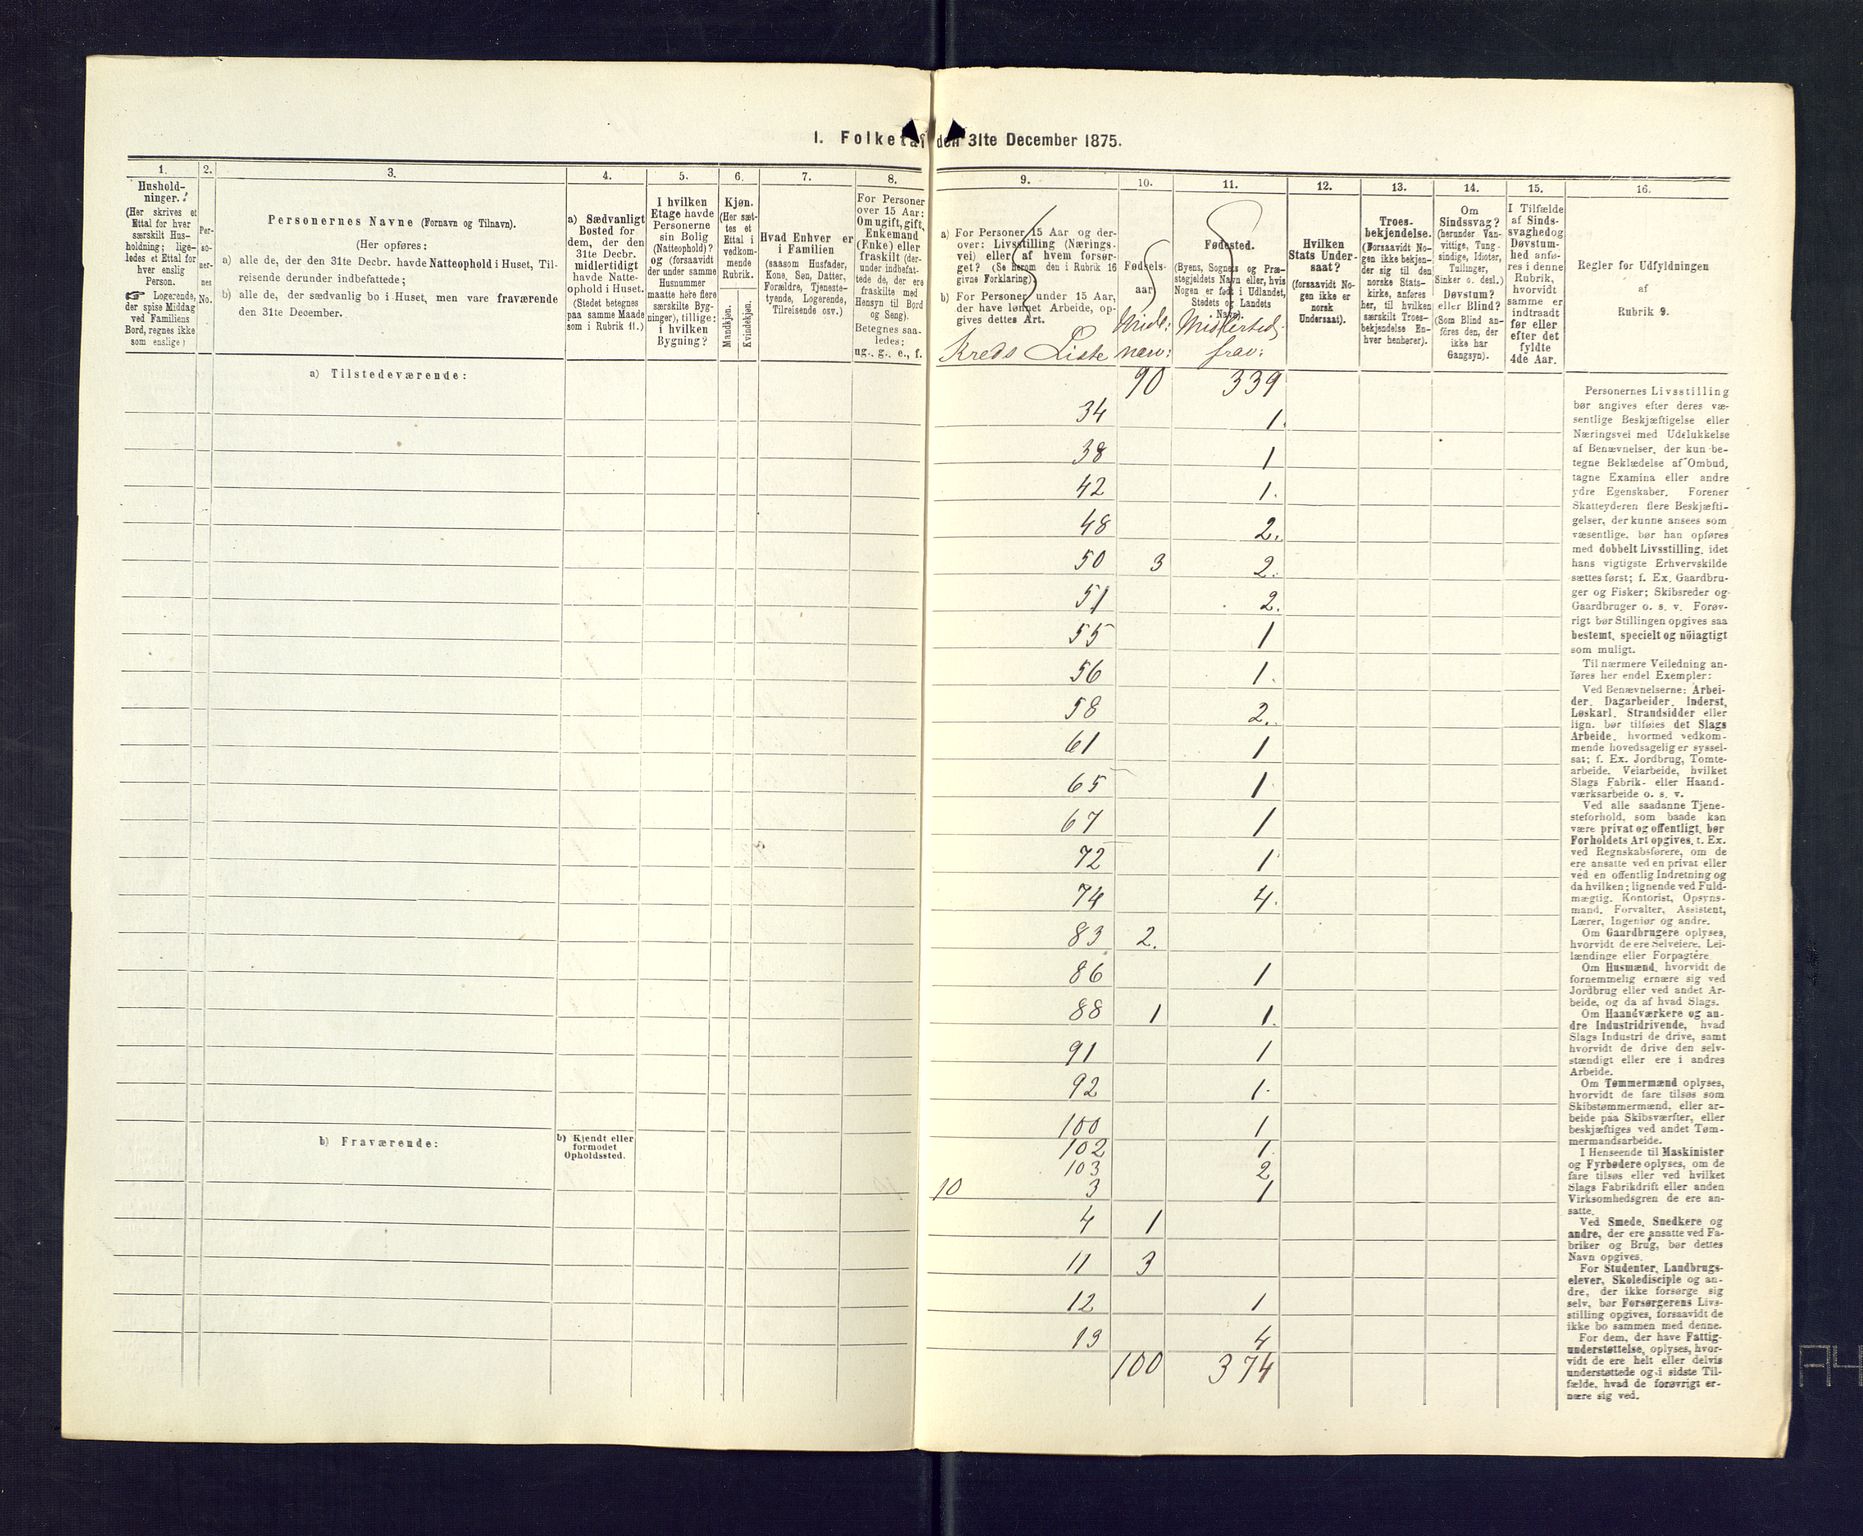 1. Folketæl den 31te December 1875.
1.
2.
3.
4.
5.
6.
7.
8.
9.
10.
11.
12.
13.
14.
15.
16.
Hushold-
ninger.
(Her skrives et
Ettal for hver
særskilt Hus-
holdning; lige-
ledes et Ettal for
hver enslig
Person.
☞ Logerende,
der spise Middag
ved Familiens
Bord, regnes ikke
som enslige)
Per-
so-
ner-
nes
No.
Personernes Navne (Fornavn og Tilnavn).
(Her opføres:
a) alle de, der den 31te Decbr. havde Natteophold i Huset, Til-
reisende derunder indbefattede;
b) alle de, der sædvanlig bo i Huset, men vare fraværende
den 31te December.
a) Sædvanligt
Bosted for
dem, der den
31te Decbr.
midlertidigt
havde Natte-
ophold i Huset.
(Stedet betegnes
paa samme Maade
som i Rubrik 11.)
I hvilken
Etage havde
Personerne
sin Bolig
(Natteophold)?
og (forsaavidt
der under samme
Husnummer
maatte høre flere
særskilte Byg-
ninger), tillige:
i hvilken
Bygning?
Kjøn.
(Her sæt-
tes et
Ettal i
vedkom-
mende
Rubrik.
Mandkjøn.
Kvindekjøn.
Hvad Enhver er
i Familien
(saasom Husfader,
Kone, Søn, Datter,
Forældre, Tjeneste-
tyende, Logerende,
Tilreisende osv.)
For Personer
over 15 Aar:
Om ugift, gift,
Enkemand
(Enke) eller
fraskilt (der-
under indbefat-
tede de, der ere
fraskilte med
Hensyn til Bord
og Seng).
Betegnes saa-
ledes:
ug., g., e., f.
a) For Personer 15 Aar og der-
over: Livsstilling (Nærings-
vei) eller af hvem forsør-
get? (Se herom den i Rubrik 16
givne Forklaring).
b) For Personer under 15 Aar,
der have lønnet Arbeide, op-
gives dettes Art.
Kreds Liste
Fødsels-
aar.
Midl:
nærv:
Fødested.
(Byens, Sognets og Præ-
stegjeldets Navn eller, hvis
Nogen er født i Udlandet,
Stedets og Landets
Navn).
Midlertid.
frav:
Hvilken
Stats Under-
saat?
(forsaavidt No-
gen ikke er
norsk
Undersaat).
Troes-
bekjendelse.
(Forsaavidt No-
gen ikke bekjen-
der sig til den
norske Stats-
kirke, anføres
her, til hvilken
særskilt Troes-
bekjendelse En-
hver henhører).
Om
Sindssvag?
(herunder Van-
vittige, Tung-
sindige, Idioter,
Tullinger,
Sinker o. desl.)
Døvstum?
eller Blind?
(Som Blind an-
føres den, der
ikke har
Gangsyn).
I Tilfælde
af Sinds-
svaghed og
Døvstum-
hed anfø-
res i denne
Rubrik,
hvorvidt
samme er
indtraadt
før eller
efter det
fyldte
4de Aar.
Regler for Udfyldningen
af
Rubrik 9.
a) Tilstedeværende:
90 339
34 1.
38 1
42 1.
48 2.
50 3 2.
51 2.
55 1
56 1.
58 2.
61 1
65 1
67 1
72 1
74 4.
83 2.
86 1
88 1 1.
91 1
92 1.
100 1
102 1.
103 2
10 3 1
4 1
11 3
12 1
13 4
100 374
b) Fraværende:
b) Kjendt eller
formodet
Opholdssted.
Personernes Livsstilling
bør angives efter deres væ-
sentlige Beskjæftigelse eller
Næringsvei med Udelukkelse
af Benævnelser, der kun be-
tegne Beklædelse af Ombud,
tagne Examina eller andre
ydre Egenskaber. Forener
Skatteyderen flere Beskjæfti-
gelser, der kunne ansees som
væsentlige, bør han opføres
med dobbelt Livsstilling, idet
hans vigtigste Erhvervskilde
sættes først; f. Ex. Gaardbru-
ger og Fisker; Skibsreder og
Gaardbruger o. s. v. Forøv-
rigt bør Stillingen opgives saa
bestemt, specielt og nöiagtigt
som muligt.
Til nærmere Veiledning an-
føres her endel Exempler:
Ved Benævnelserne: Arbei-
der, Dagarbeider, Inderst,
Løskarl, Strandsidder eller
lign. bør tilføies det Slags
Arbeide, hvormed vedkom-
mende hovedsagelig er syssel-
sat; f. Ex. Jordbrug, Tomte-
arbeide, Veiarbeide, hvilket
Slags Fabrik- eller Haand-
værksarbeide o. s. v.
Ved alle saadanne Tjene-
steforhold, som baade kan
være privat og offentligt, bør
Forholdets Art opgives, f. Ex.
ved Regnskabsførere, om de
ere ansatte ved en privat eller
ved en offentlig Indretning og
da hvilken; lignende ved Fuld-
mægtig, Kontorist, Opsyns-
mand, Forvalter, Assistent,
Lærer, Ingeniør og andre.
Om Gaardbrugere oplyses,
hvorvidt de ere Selveiere, Lei-
lændinge eller Forpagtere.
Om Husmænd, hvorvidt de
fornemmelig ernære sig ved
Jordbrug eller ved andet Ar-
beide, og da af hvad Slags.
Om Haandværkere og an-
dre Industridrivende, hvad
Slags Industri de drive, samt
hvorvidt de drive den selv-
stændigt eller ere i andres
Arbeide.
Om Tømmermænd oplyses,
hvorvidt de fare tilsøs som
Skibstømmermænd, eller ar-
beide paa Skibsværfter, eller
beskjæftiges ved andet Tøm-
mermandsarbeide.
I Henseende til Maskinister
og Fyrbødere oplyses, om de
fare tilsøs eller ved hvilket
Slags Fabrikdrift eller anden
Virksomhedsgren de ere an-
satte.
Ved Smede, Snedkere og
andre, der ere ansatte ved Fa-
briker og Brug, bør dettes
Navn opgives.
For Studenter, Landbrugs-
elever, Skoledisciple og an-
dre, der ikke forsørge sig
selv, bør Forsørgerens Livs-
stilling opgives, forsaavidt de
ikke bo sammen med denne.
For dem, der have Fattig-
understøttelse, oplyses, hvor-
vidt de ere helt eller delvis
understøttede og i sidste Til-
fælde, hvad de forøvrigt er-
nære sig ved.